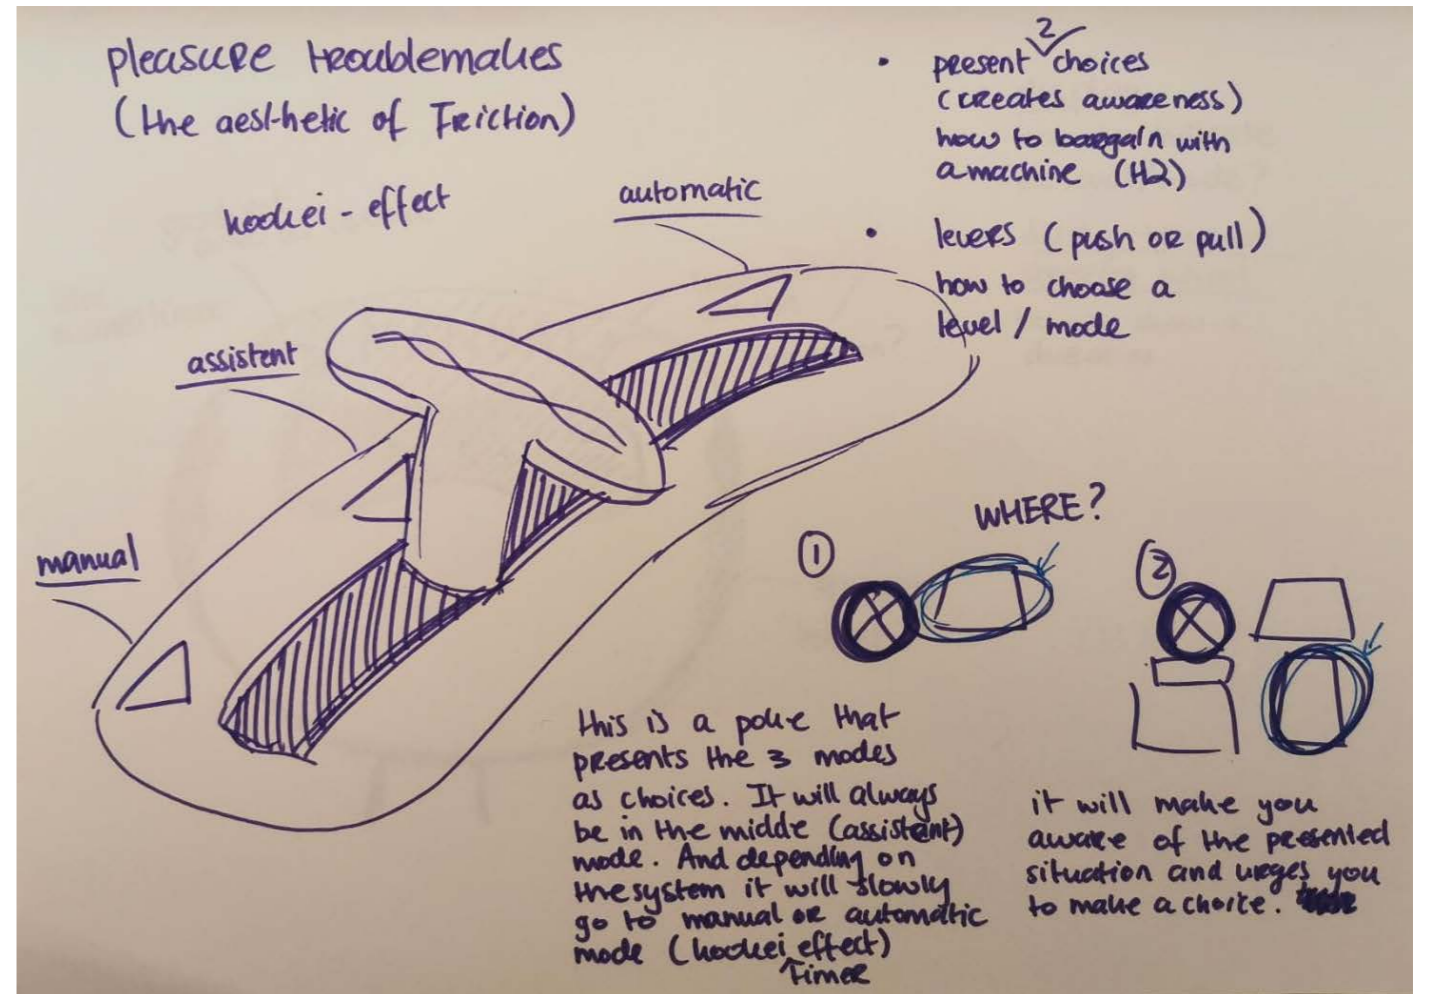 pleasure troublemakes
(the aesthetic of Friction)
kookei - effect
automatic
assistent
manual
• present 2 choices
(creates awareness)
how to bargain with
a machine (H2)
• levers (push or pull)
how to choose a
level / mode
WHERE?
1
2
this is a poke that
presents the 3 modes
as choices. It will always
be in the midde (assistent)
mode. And depending on
the system it will slowly
go to manual or automatic
mode (kookei effect)
Timer
it will make you
aware of the presented
situation and urges you
to make a choice.